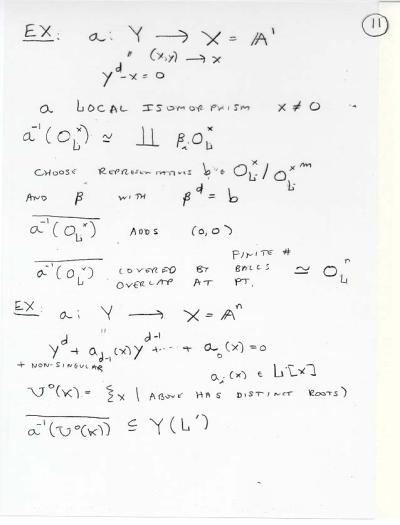 11
EX: a: Y → X = A¹
" (x,y) → x
y^d - x = 0
a LOCAL ISOMORPHISM x ≠ 0
a⁻¹(O_L^x) ≃ ∐ β_i O_L^x
CHOOSE REPRESENTATIVES b ∈ O_L^x / O_L^{x m}
AND β WITH β^d = b
\overline{a⁻¹(O_L^x)} ADDS (0,0)
\overline{a⁻¹(O_L^x)} COVERED BY FINITE # BALLS ≃ O_L^n
OVERLAP AT PT.
EX: a: Y → X = Aⁿ
"
y^d + a_{d-1}(x) y^{d-1} + ... + a_0(x) = 0
+ NON-SINGULAR a_i(x) ∈ L[x]
U⁰(K) = {x | ABOVE HAS DISTINCT ROOTS)
\overline{a⁻¹(U⁰(K))} ⊆ Y(L')